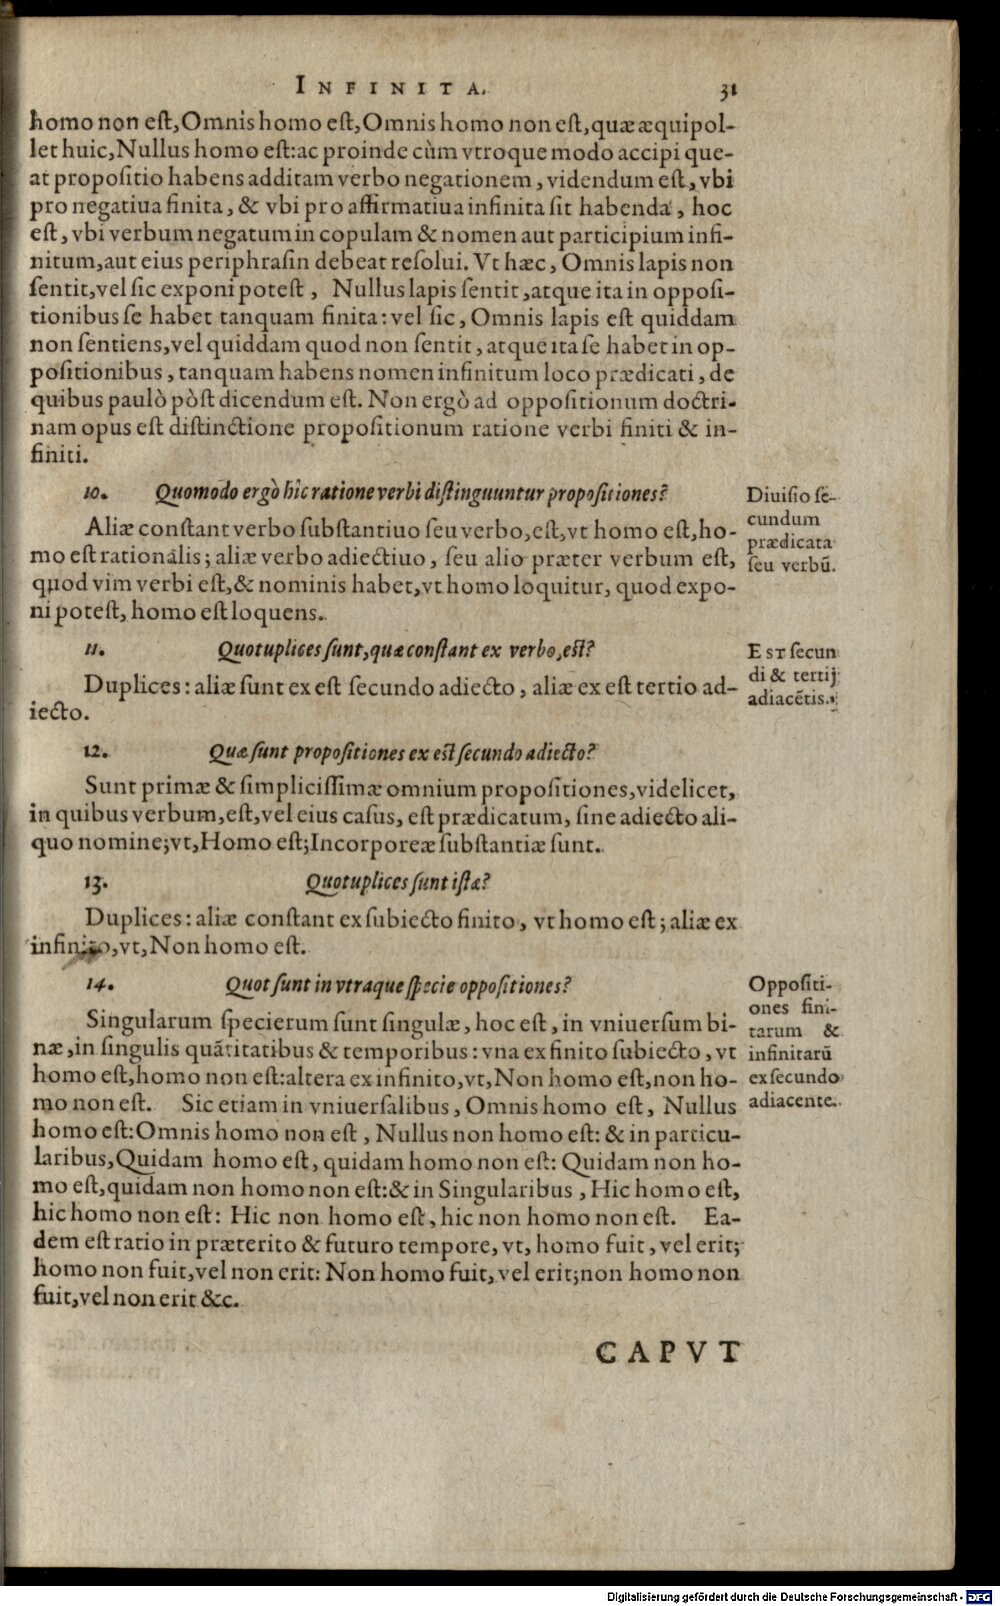 INFINITA. 31
homo non est, Omnis homo est, Omnis homo non est, quæ æquipol-
let huic, Nullus homo est: ac proinde cùm vtroque modo accipi que-
at propositio habens additam verbo negationem, videndum est, vbi
pro negatiua finita, & vbi pro affirmatiua infinita sit habenda, hoc
est, vbi verbum negatum in copulam & nomen aut participium infi-
nitum, aut eius periphrasin debeat resolui. Vt hæc, Omnis lapis non
sentit, vel sic exponi potest, Nullus lapis sentit, atque ita in opposi-
tionibus se habet tanquam finita: vel sic, Omnis lapis est quiddam
non sentiens, vel quiddam quod non sentit, atque ita se habet in op-
positionibus, tanquam habens nomen infinitum loco prædicati, de
quibus paulò pòst dicendum est. Non ergò ad oppositionum doctri-
nam opus est distinctione propositionum ratione verbi finiti & in-
finiti.
10. Quomodo ergò hîc ratione verbi distinguuntur propositiones?
Aliæ constant verbo substantiuo seu verbo, est, vt homo est, ho-
mo est rationalis; aliæ verbo adiectiuo, seu alio præter verbum est,
quod vim verbi est, & nominis habet, vt homo loquitur, quod expo-
ni potest, homo est loquens.
Diuisio se-
cundum
prædicata
seu verbū.
11. Quotuplices sunt, quæ constant ex verbo, est?
Duplices: aliæ sunt ex est secundo adiecto, aliæ ex est tertio ad-
iecto.
EST secun
di & tertij
adiacētis.
12. Quæ sunt propositiones ex est secundo adiecto?
Sunt primæ & simplicissimæ omnium propositiones, videlicet,
in quibus verbum, est, vel eius casus, est prædicatum, sine adiecto ali-
quo nomine; vt, Homo est; Incorporeæ substantiæ sunt.
13. Quotuplices sunt istæ?
Duplices: aliæ constant ex subiecto finito, vt homo est; aliæ ex
infinito, vt, Non homo est.
14. Quot sunt in vtraque specie oppositiones?
Singularum specierum sunt singulæ, hoc est, in vniuersum bi-
næ, in singulis quātitatibus & temporibus: vna ex finito subiecto, vt
homo est, homo non est: altera ex infinito, vt, Non homo est, non ho-
mo non est. Sic etiam in vniuersalibus, Omnis homo est, Nullus
homo est: Omnis homo non est, Nullus non homo est: & in particu-
laribus, Quidam homo est, quidam homo non est: Quidam non ho-
mo est, quidam non homo non est: & in Singularibus, Hic homo est,
hic homo non est: Hic non homo est, hic non homo non est. Ea-
dem est ratio in præterito & futuro tempore, vt, homo fuit, vel erit;
homo non fuit, vel non erit: Non homo fuit, vel erit; non homo non
fuit, vel non erit &c.
Oppositi-
ones fini-
tarum &
infinitarū
ex secundo
adiacente.
CAPVT
Digitalisierung gefördert durch die Deutsche Forschungsgemeinschaft - DFG